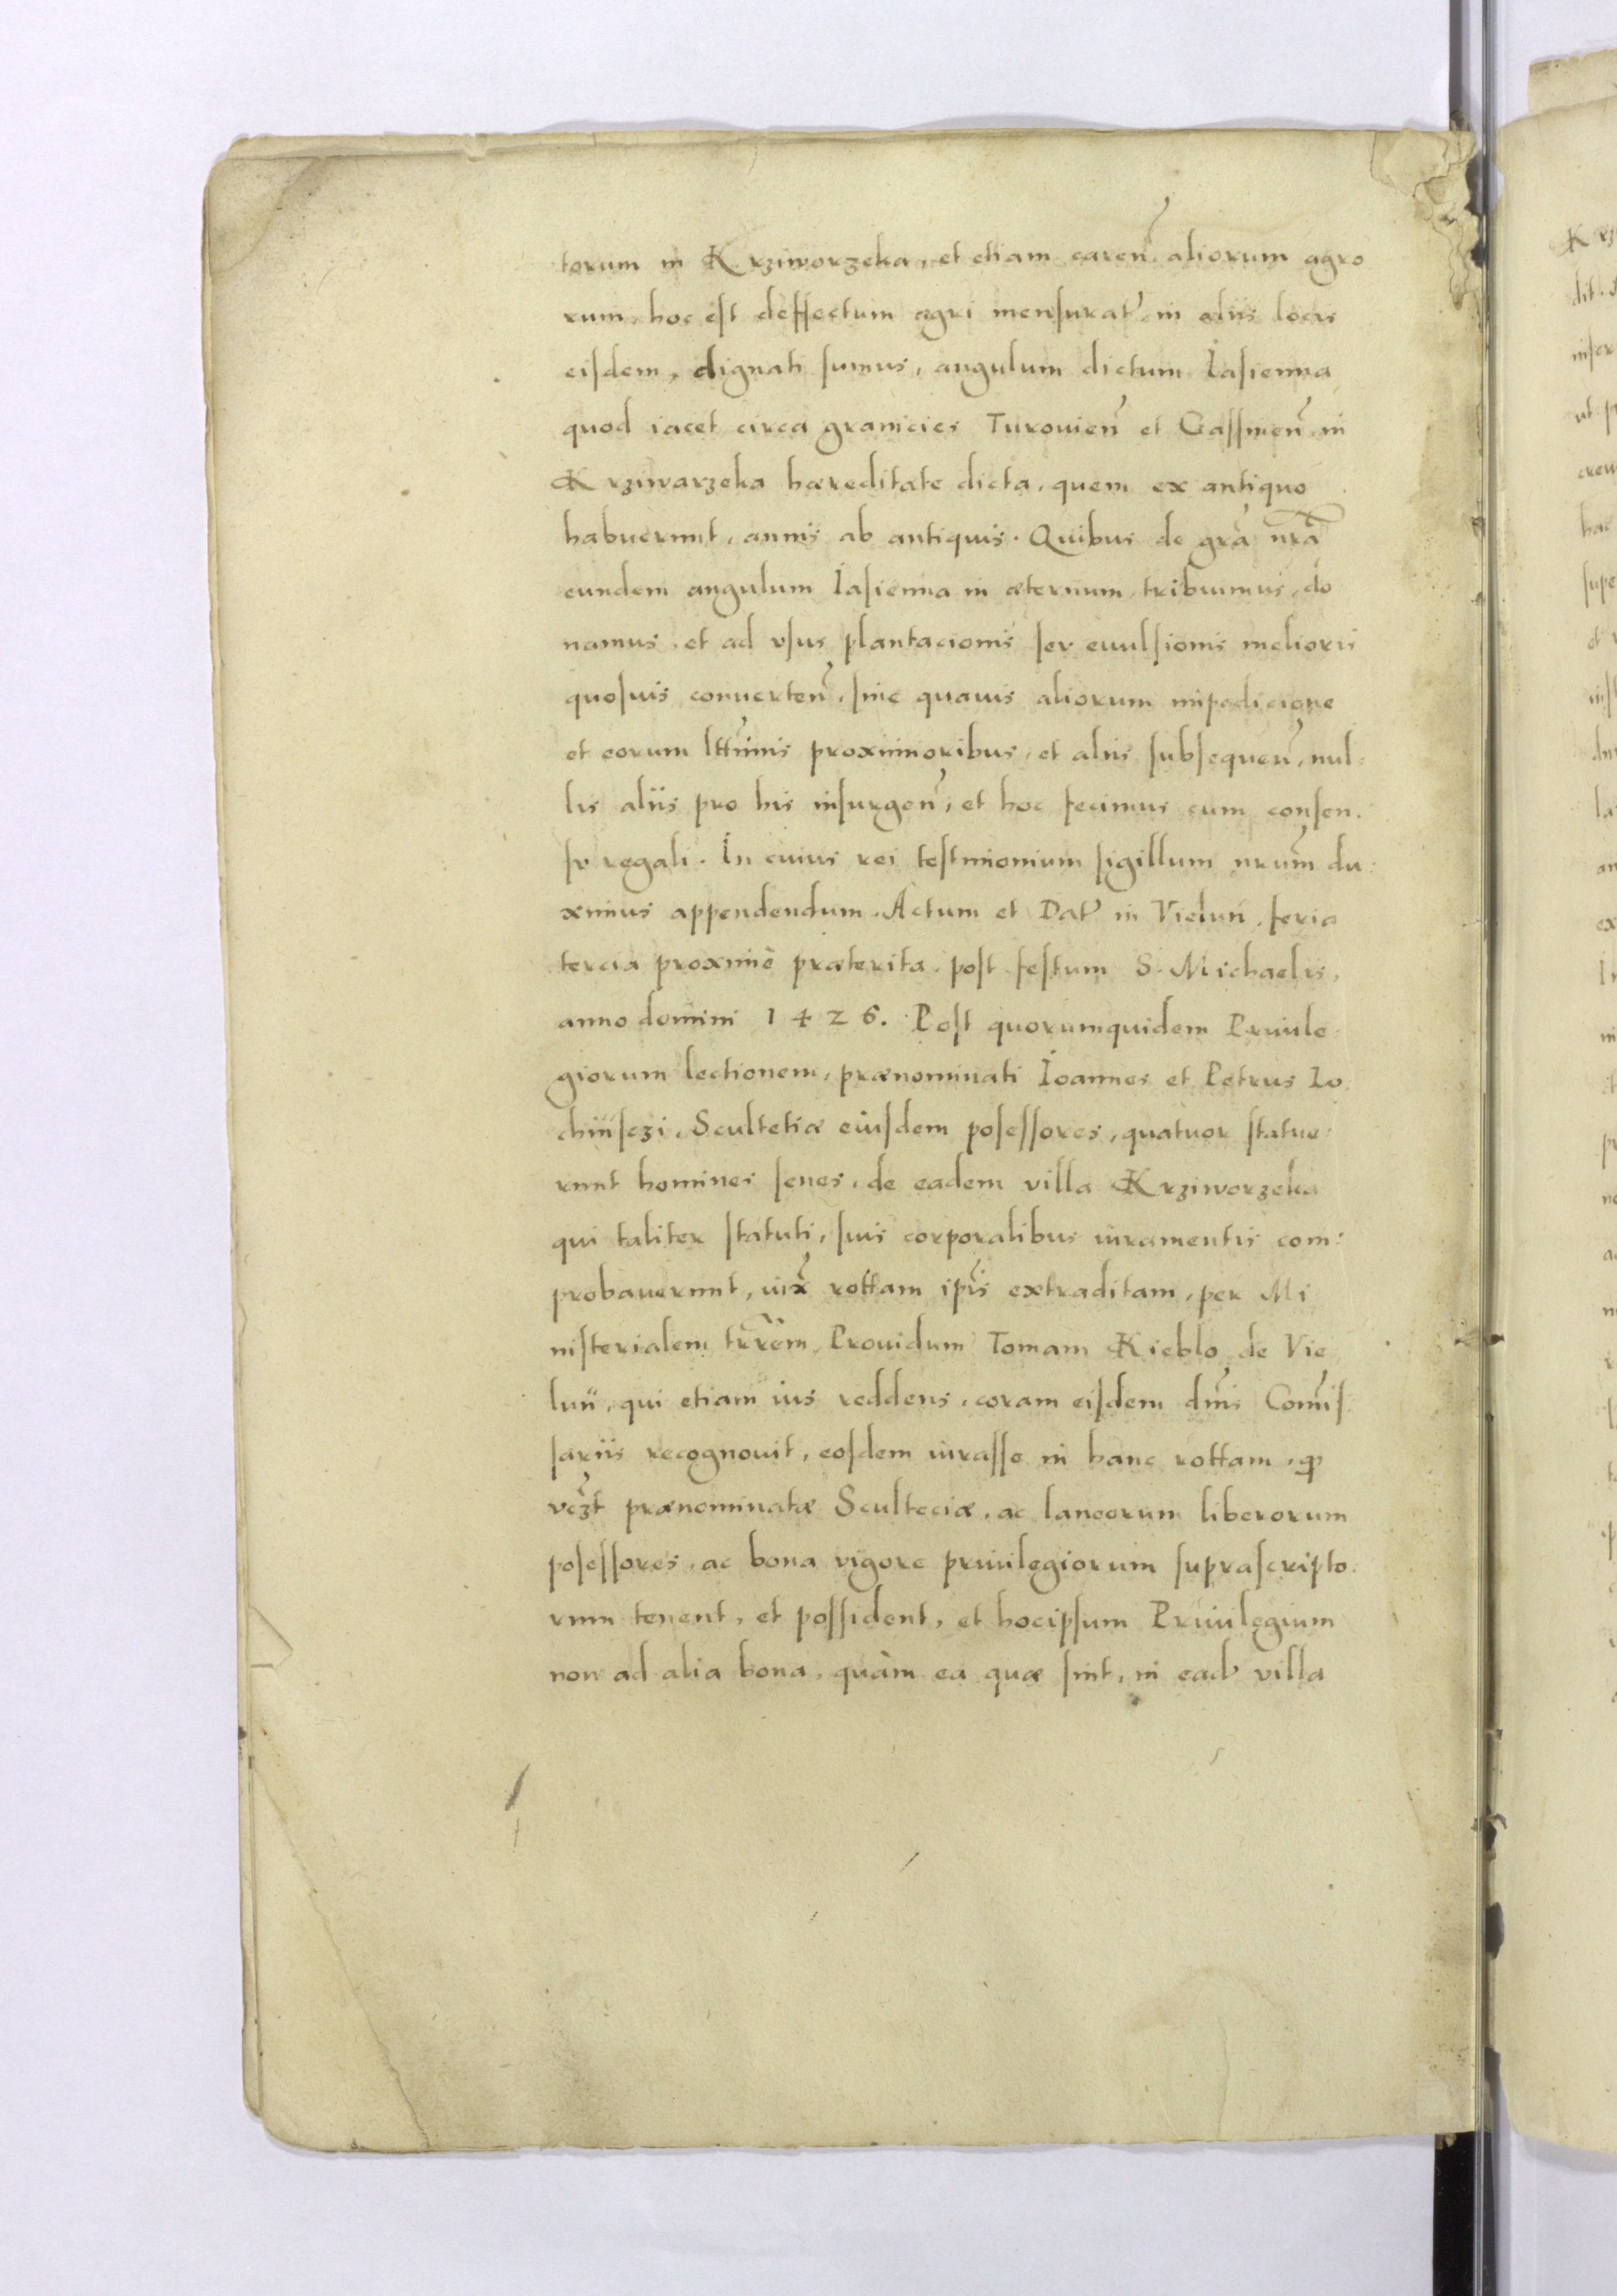 torum in Krziworzeka, et etiam caren̄ aliorum agro
rum, hoc est deffectum agri mensurat̄, in aliis locis
eisdem, dignati sumus, angulum dictum Iasienna
quod iacet circa granicies Turouien̄ et Gassinen̄ in
Krziwarzeka hæreditate dicta, quem ex antiquo
habuerunt, annis ab antiquis. Quibus de gr̄a nr̄a
eundem angulum Iasienna in æternum tribuimus, do
namus, et ad vsus plantacionis seu euulsionis melioris
quosuis conuerten̄, sine quauis aliorum impedicione
et eorum lt̄timis proximioribus, et aliis subsequen̄, nul-
lis aliis pro his insurgen̄, et hoc fecimus cum consen-
su regali. In cuius rei testimonium sigillum nr̄um du-
ximus appendendum. Actum et Dat̄ in Vielun, feria
tercia proximè præterita, post festum S. Michaelis,
anno domini 1426. Post quorumquidem Priuile
giorum lectionem, prænominati Ioannes et Petrus Lo
chinsczi, Scultetiæ eiusdem posessores, quatuor statue-
runt homines senes, de eadem villa Krziworzeka
qui taliter statuti, suis corporalibus iuramentis com-
probauerunt, iux̄ rottam ip̄is extraditam, per Mi
nisterialem tr̄rēm, Prouidum Tomam Kieblo de Vie
luń, qui etiam ius reddens, coram eisdem dn̄is Com̄is
sariis recognouit, eosdem iurasse in hanc rottam, qͥ
vcz̄t prænominatæ Sculteciæ, ac laneorum liberorum
posessores, ac bona vigore priuilegiorum suprascripto-
rum tenent, et possident, et hocipsum Priuilegium
non ad alia bona, quàm ea quæ sunt, in ead̄ villa